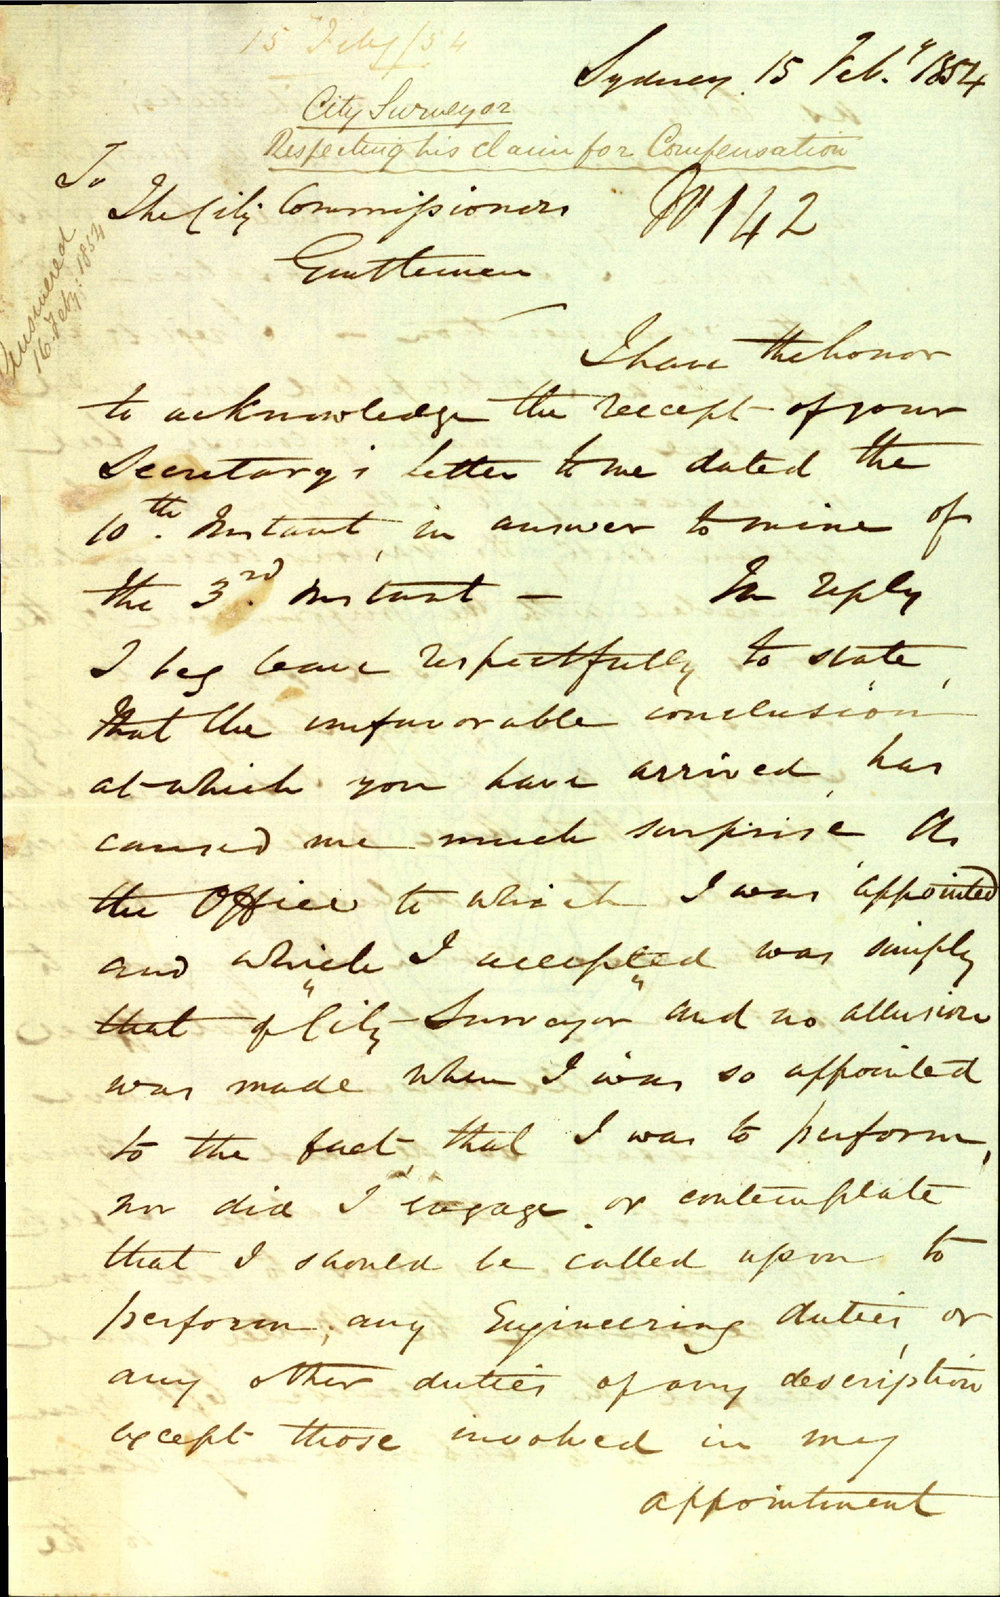 15 Feby/54
Sydney 15 Feb.y 1854
City Surveyor
Respecting his claim for Compensation
To
The City Commissioners
No 142
Gentlemen
Answered
16 Feby: 1854
I have the honor
to acknowledge the receipt of your
Secretary's letter to me dated the
10th. Instant, in answer to mine of
the 3rd. Instant — In reply
I beg leave respectfully to state,
that the unfavorable conclusion
at which you have arrived, has
caused me much surprise. As
the Office to which I was appointed
and which I accepted was simply
that of "City Surveyor" and no allusion
was made when I was so appointed
to the fact, that I was to perform,
nor did I engage or contemplate
that I should be called upon to
perform, any Engineering duties, or
any other duties of any description
except those involved in my
appointment